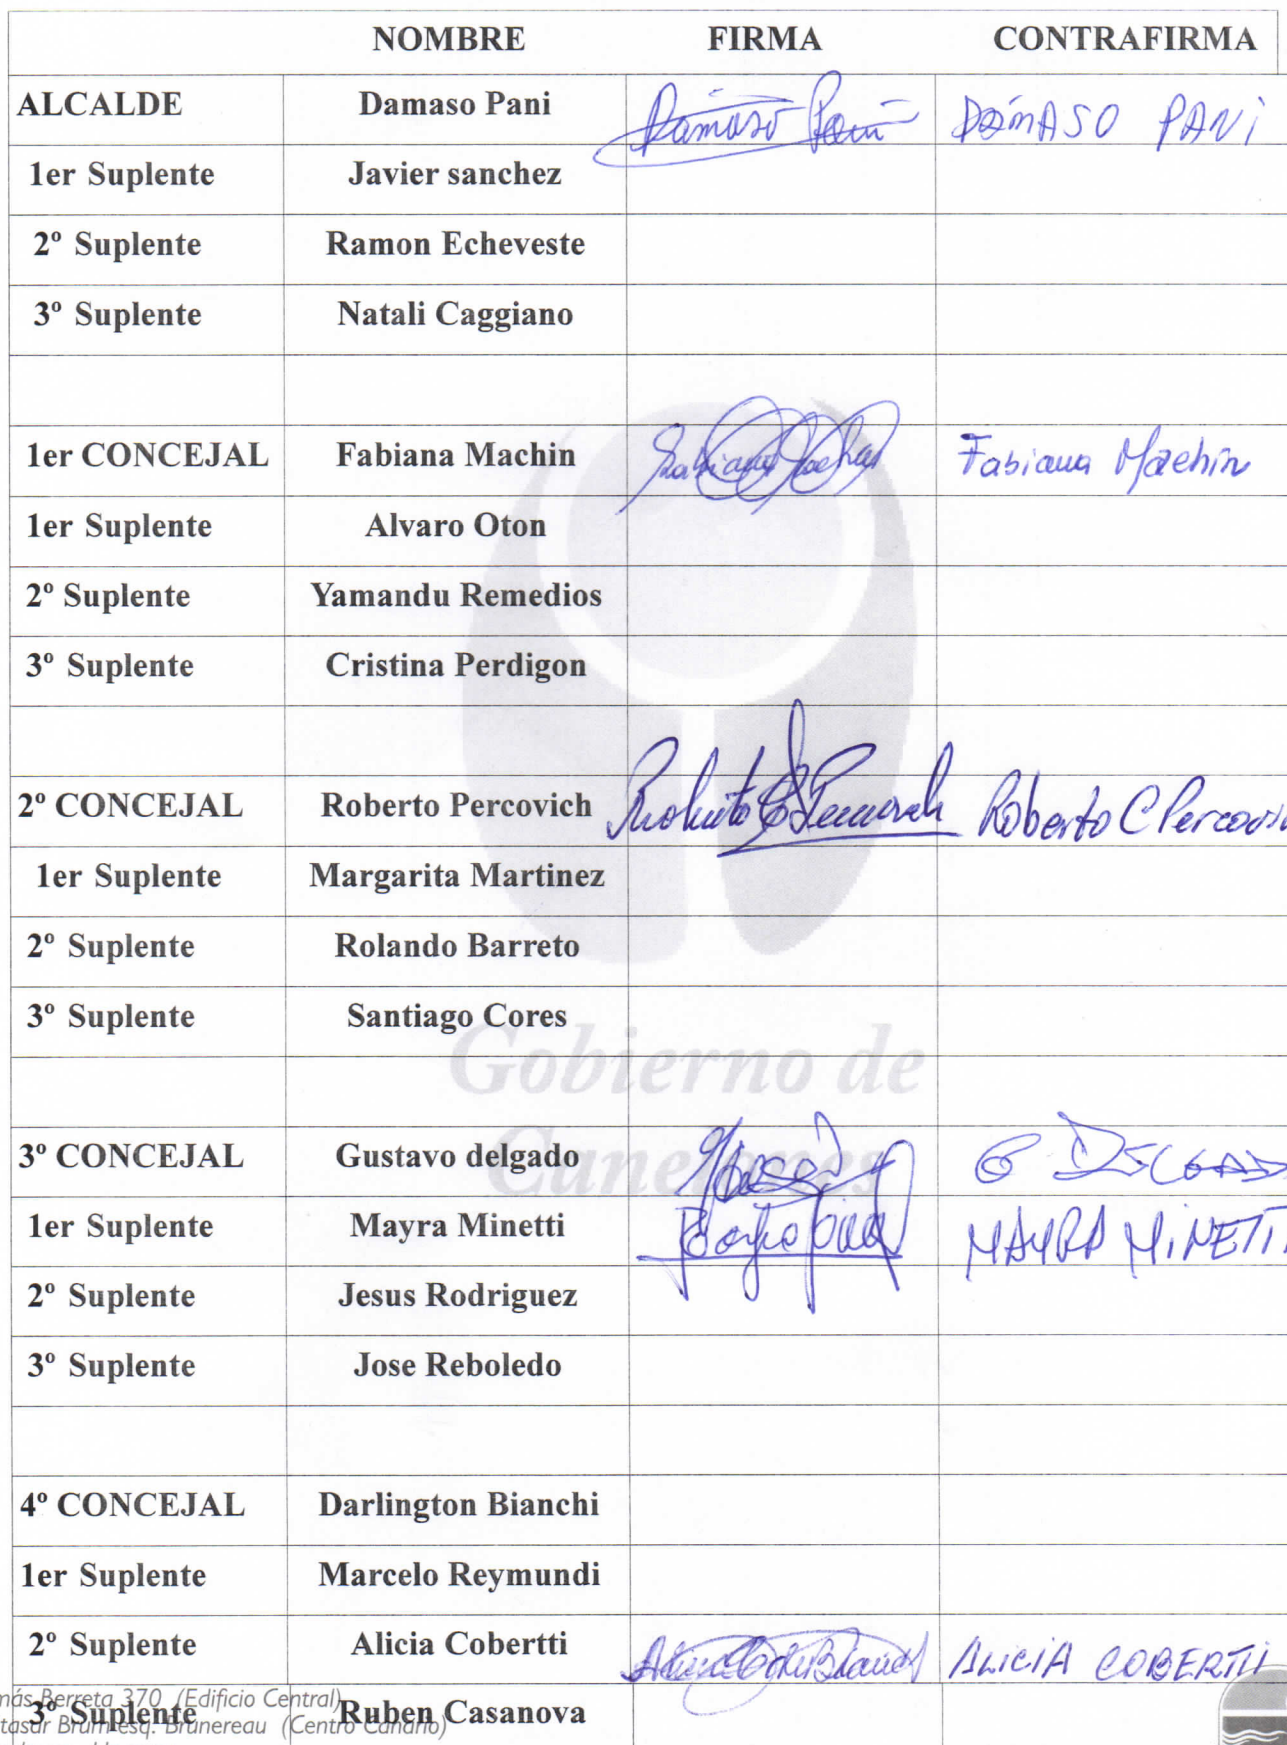 NOMBRE FIRMA CONTRAFIRMA
ALCALDE Damaso Pani Damaso Pani DAMASO PANI
1er Suplente Javier sanchez
2º Suplente Ramon Echeveste
3º Suplente Natali Caggiano
1er CONCEJAL Fabiana Machin Fabiana Machin
1er Suplente Alvaro Oton
2º Suplente Yamandu Remedios
3º Suplente Cristina Perdigon
2º CONCEJAL Roberto Percovich Roberto C Percovi
1er Suplente Margarita Martinez
2º Suplente Rolando Barreto
3º Suplente Santiago Cores
Gobierno de
Canelones
3º CONCEJAL Gustavo delgado G DELGAD
1er Suplente Mayra Minetti MAYRA MINETTI
2º Suplente Jesus Rodriguez
3º Suplente Jose Reboledo
4º CONCEJAL Darlington Bianchi
1er Suplente Marcelo Reymundi
2º Suplente Alicia Cobertti ALICIA COBERTTI
3º Suplente Ruben Casanova
más Berreta 370 (Edificio Central)
tasar Brum esq. Brunereau (Centro Canario)